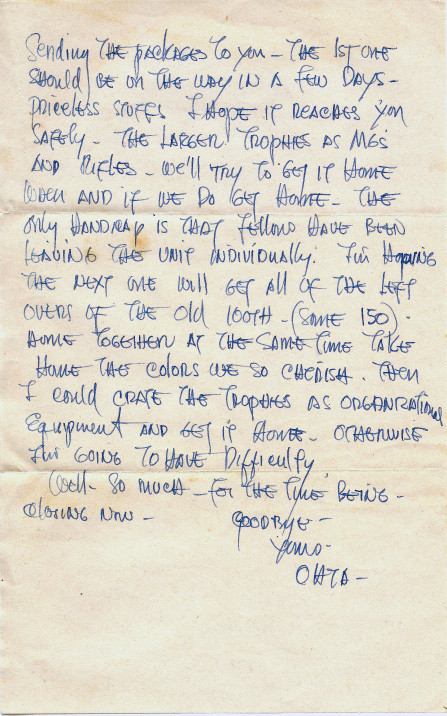 Sending THE packages To you - THE 1st one
should BE on THE WAY IN A FEW DAYS -
priceless stuffs I Hope it REACHES you
SAFELY - THE LARGER TROPHIES AS MGS
AND RIFLES - WE'll TRY To GET IT HOME
WHEN AND IF WE DO GET HOME - THE
only HANDICAP IS THAT FELLOWS HAVE BEEN
LEAVING THE UNIT INDIVIDUALLY. I'm Hoping
THE NEXT ONE will GET ALL OF THE LEFT
OVERS OF THE old 100TH - (SOME 150) -
HOME TOGETHER AT THE SAME TIME TAKE
HOME THE COLORS WE SO CHERISH. THEN
I could CRATE THE TROPHIES AS ORGANIZATIONAL
Equipment AND GET IT HOME - OTHERWISE
I'm GOING TO HAVE Difficulty
Well - SO MUCH - FOR THE TIME BEING -
closing NOW - GOODBYE -
yours -
OHTA -